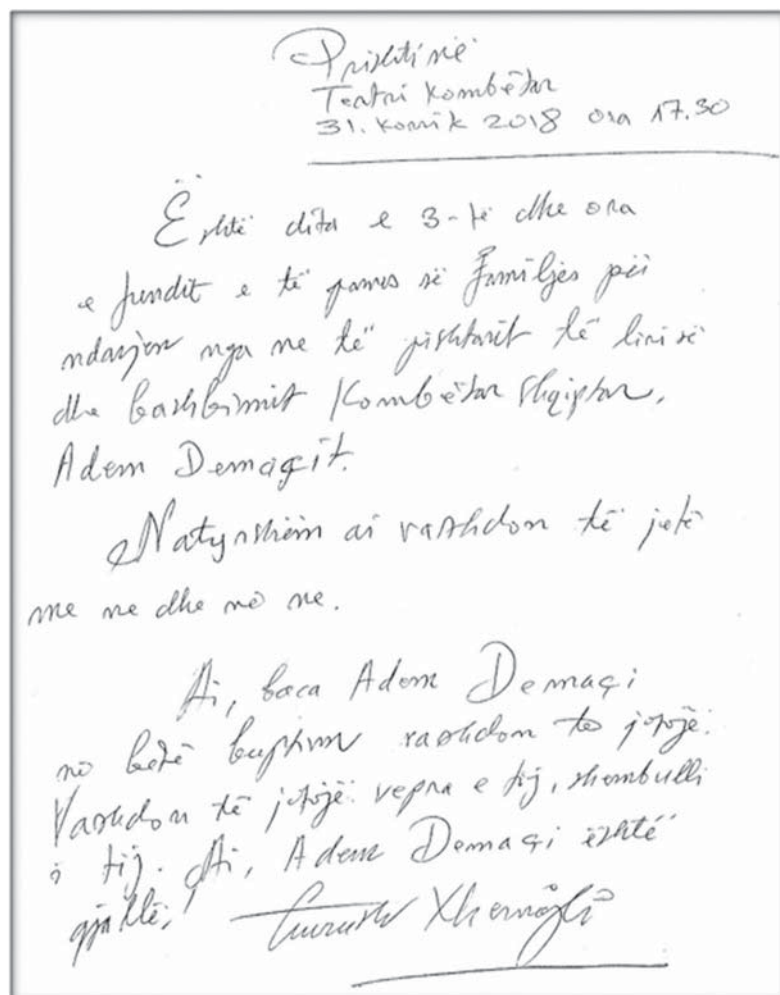 Prishtinë
Teatri Kombëtar
31. Korrik 2018 ora 17.30
Është dita e 3-të dhe ora
e fundit e të pames së familjes për
ndarjen nga ne të pishtarit të lirisë
dhe bashkimit Kombëtar Shqiptar,
Adem Demaçit.
Natyrshëm ai vazhdon të jetë
me ne dhe në ne.
Ai, baca Adem Demaçi
në këtë kuptim vazhdon të jetojë.
Vazhdon të jetojë vepra e tij, shembulli
i tij. Ai, Adem Demaçi është
gjallë!
Xhemajli